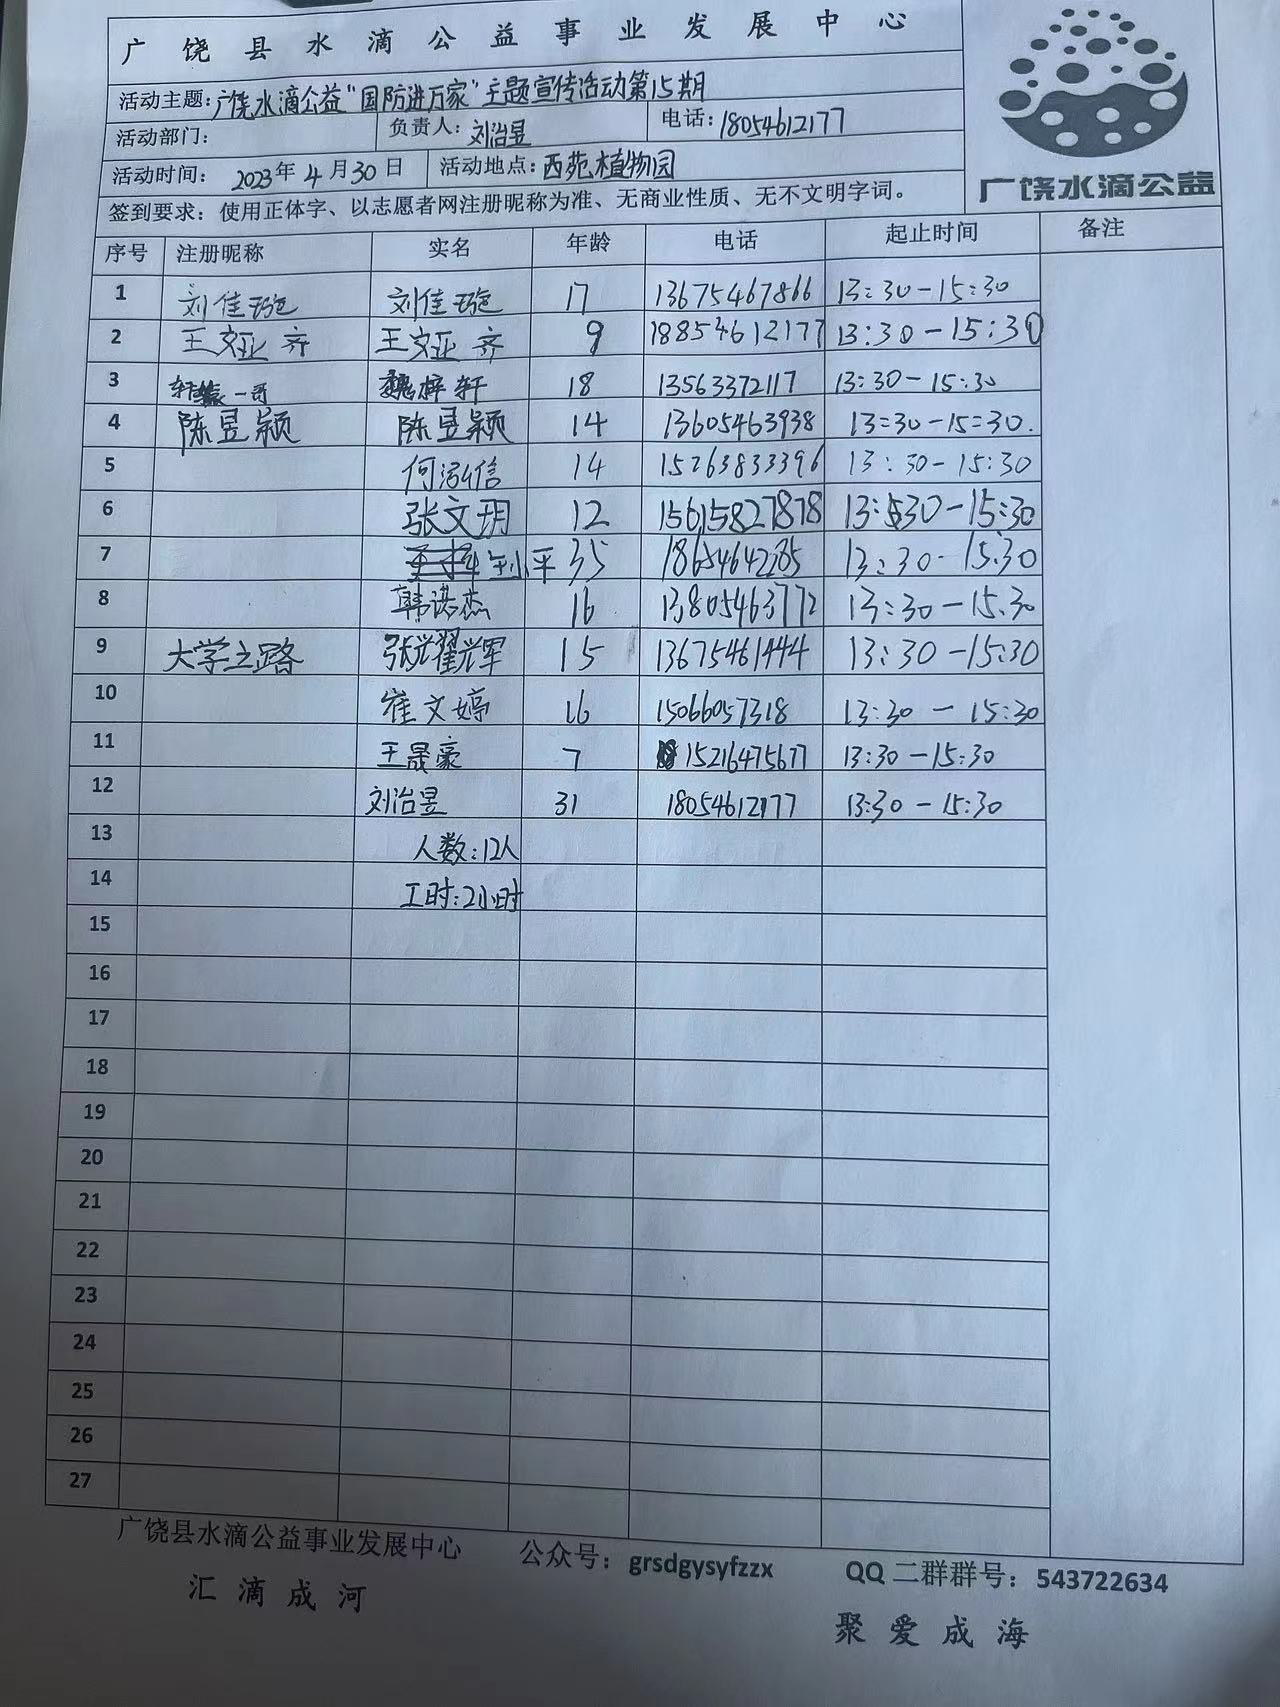 广饶县水滴公益事业发展中心
广饶水滴公益
活动主题:广饶水滴公益"国防进万家"主题宣传活动第15期
活动部门: 负责人:刘治昱 电话:18054612177
活动时间: 2023年4月30日 活动地点:西苑植物园
签到要求:使用正体字、以志愿者网注册昵称为准、无商业性质、无不文明字词。
序号 注册昵称 实名 年龄 电话 起止时间 备注
1 刘佳璇 刘佳璇 17 13675467866 13:30-15:30
2 王文亚齐 王文亚齐 9 18854612177 13:30-15:30
3 一哥 魏梓轩 18 13563372117 13:30-15:30
4 陈昱颖 陈昱颖 14 13605463938 13:30-15:30.
5 何泓信 14 15263833396 13:30-15:30
6 张文玥 12 15615827878 13:30-15:30
7 平 35 18654642285 13:30-15:30
8 韩诺杰 16 13805463772 13:30-15:30
9 大学之路 15 13675461444 13:30-15:30
10 崔文婷 16 15066057318 13:30-15:30
11 王晟豪 7 15216475677 13:30-15:30
12 刘治昱 31 18054612177 13:30-15:30
13 人数:12人
14 工时:2小时
15
16
17
18
19
20
21
22
23
24
25
26
27
广饶县水滴公益事业发展中心 公众号:grsdgysyfzzx QQ二群群号:543722634
汇滴成河
聚爱成海